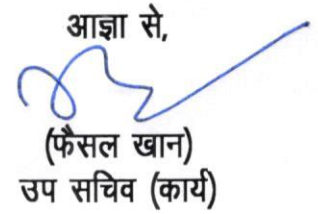 आज्ञा से,
(फैसल खान)
उप सचिव (कार्य)